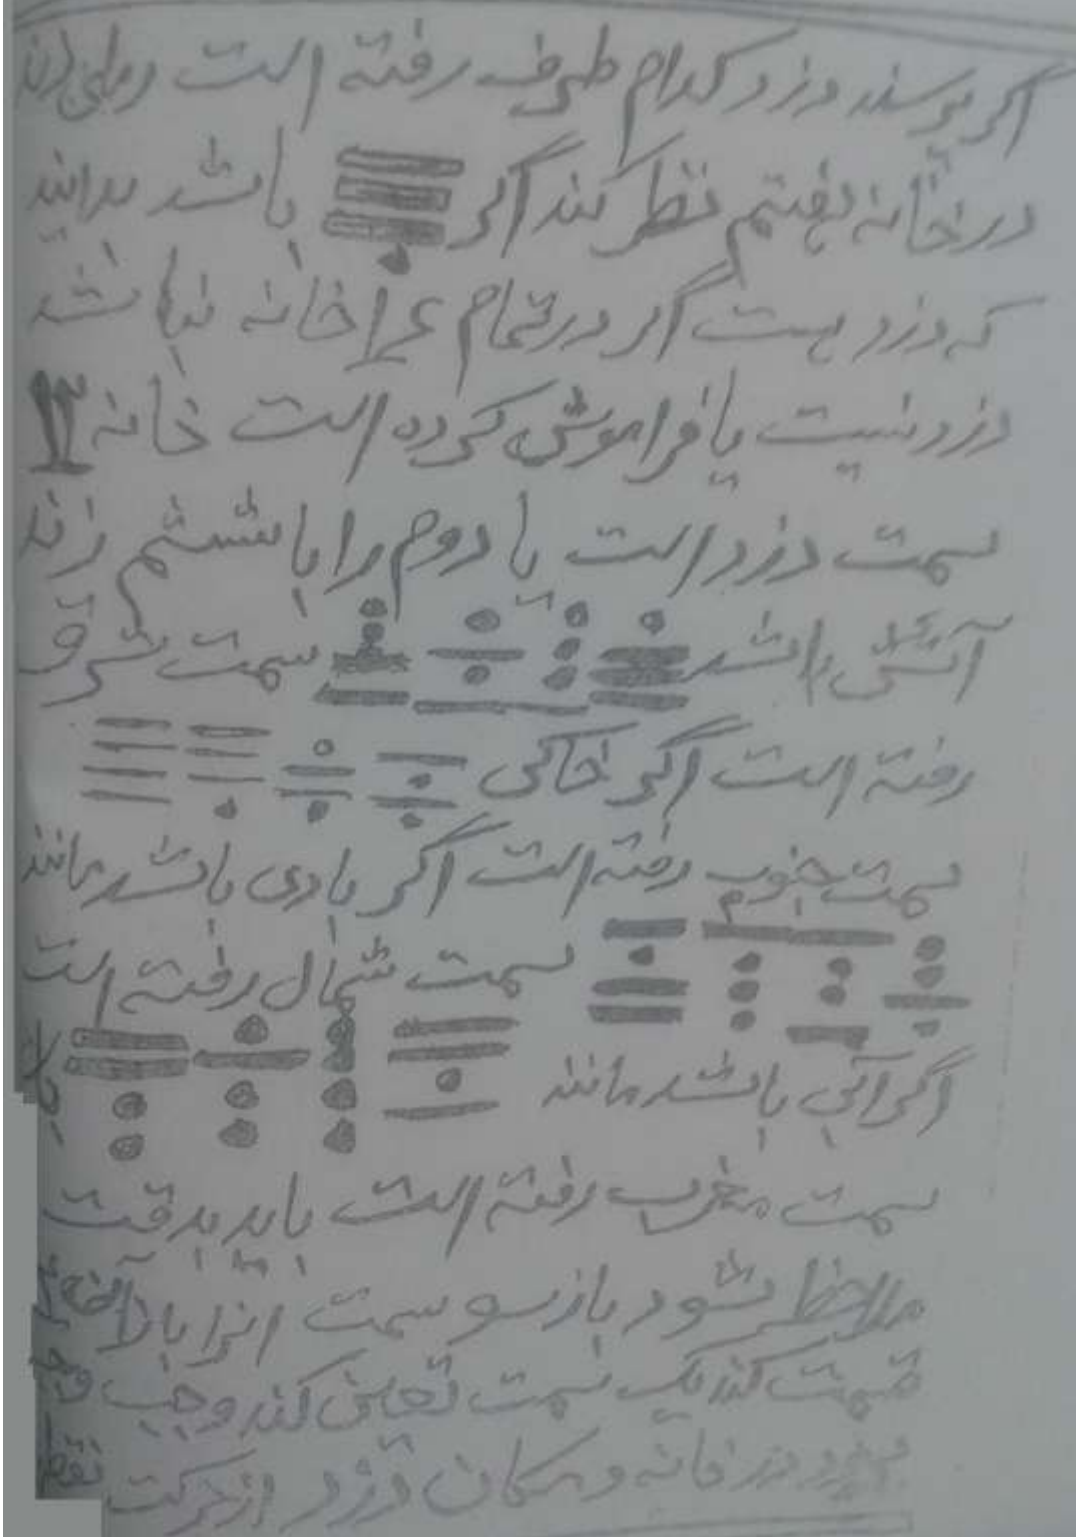 اگر پرسند دزد کدام طرف رفته است رملی زند
در خانه هفتم نظر کند اگر باشد بدانید
که دزد هست اگر در تمام ۱۶ خانه نباشد
دزد نیست یا فراموش کرده است خانه ۱۲
سمت دزد است یا دوم را با ششم زند
آتشی باشد سمت شرق
رفته است اگر خاکی
سمت جنوب رفته است اگر بادی باشد مانند
سمت شمال رفته است
اگر آبی باشد مانند
سمت مغرب رفته است باید بدقت
ملاحظه شود باز سو سمت انرا با
قسمت کند یک سمت تعین کند وجب
در خانه و مکان دزد از حرکت نقطه